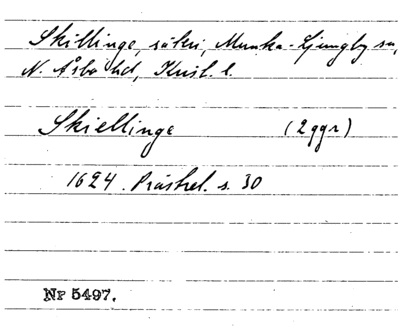 Skillinge, säteri, Munka-Ljungby sn,
N. Åsbo hd, Krist. l.
Skiellinge (2 ggr)
1624. Prästrel. s. 30
Nr 5497.